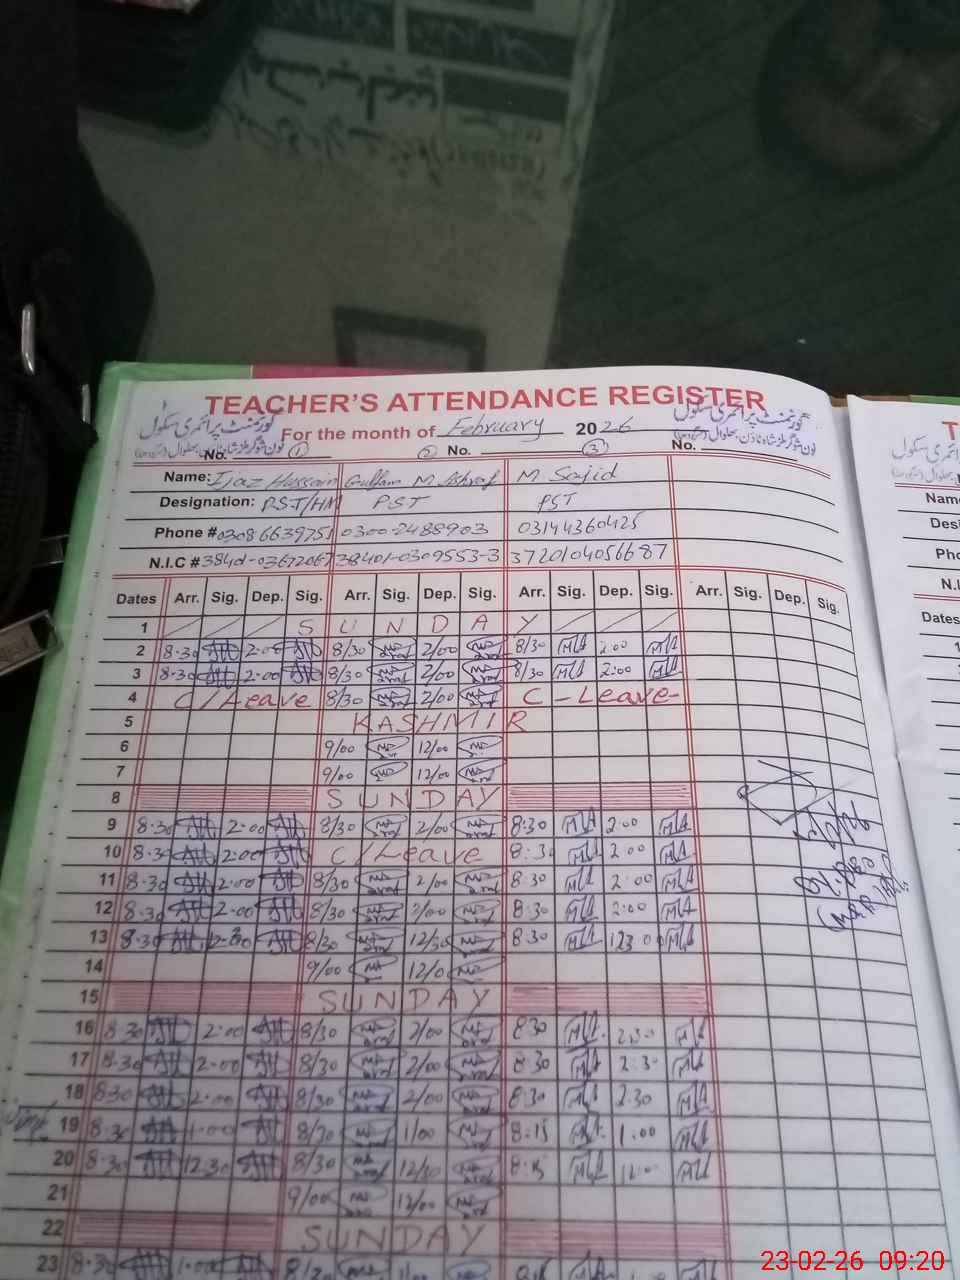 TEACHER'S ATTENDANCE REGISTER
گورنمنٹ پرائمری سکول
گورنمنٹ پرائمری سکول
For the month of February 2026
No. 1 2 No. 3 No.
Name: Ijaz Hussain Gulfam M Ashraf M Sajid
Designation: PST/HM PST PST
Phone # 03086639751 0300-2488903 03144360425
N.I.C # 38401-0309553-3 3720104056687
Dates Arr. Sig. Dep. Sig. Arr. Sig. Dep. Sig. Arr. Sig. Dep. Sig. Arr. Sig. Dep. Sig.
1 SUNDAY
2 8:30 2:00 8/30 2/00 8/30 2:00
3 8:30 2:00 8/30 2/00 8/30 2:00
4 C/Leave 8/30 2/00 C-Leave-
5 KASHMIR
6 9/00 12/00
7 9/00 12/00
8 SUNDAY
9 8:30 2:00 8/30 2/00 8:30 2:00
10 8:30 2:00 C/Leave 8:30 2:00
11 8:30 2:00 8/30 2/00 8:30 2:00
12 8:30 2:00 8/30 2/00 8:30 2:00
13 8:30 8/30 12/30 8:30
14 9/00 12/0
15 SUNDAY
16 8:30 2:00 8/30 2/00 8:30 2:30
17 8:30 2:00 8/30 2/00 8:30 2:30
18 8:30 2:00 8/30 2/00 8:30 2:30
19 8:30 1:00 8/30 1/00 8:15 1:00
20 8:30 12:30 8/30 8:15
21 9/00 12/00
22 SUNDAY
23 8:30 1:00
Name
Desi
Pho
N.I
Dates
23-02-26 09:20